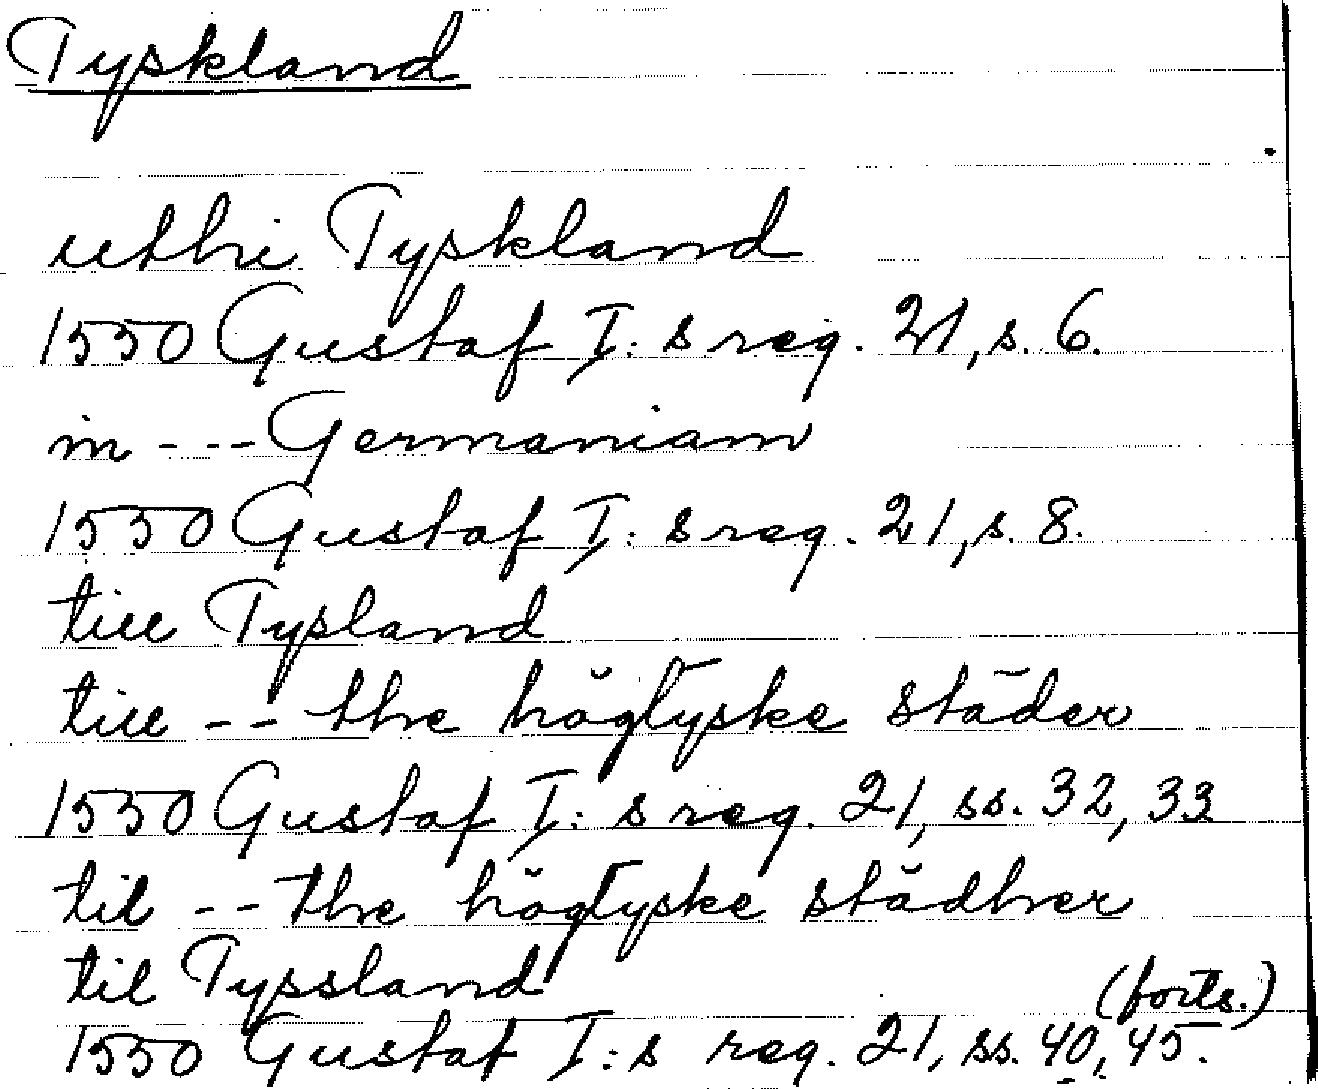 Tyskland
utthi Tyskland
1550 Gustaf I:s reg. 21, s. 6.
in --- Germaniam
1550 Gustaf I:s reg. 21, s. 8.
till Tysland
till -- the högtyske städer
1550 Gustaf I:s reg. 21, ss. 32, 33
til -- the högtyske städher
til Tyssland
(forts.)
1550 Gustaf I:s reg. 21, ss. 40, 45.